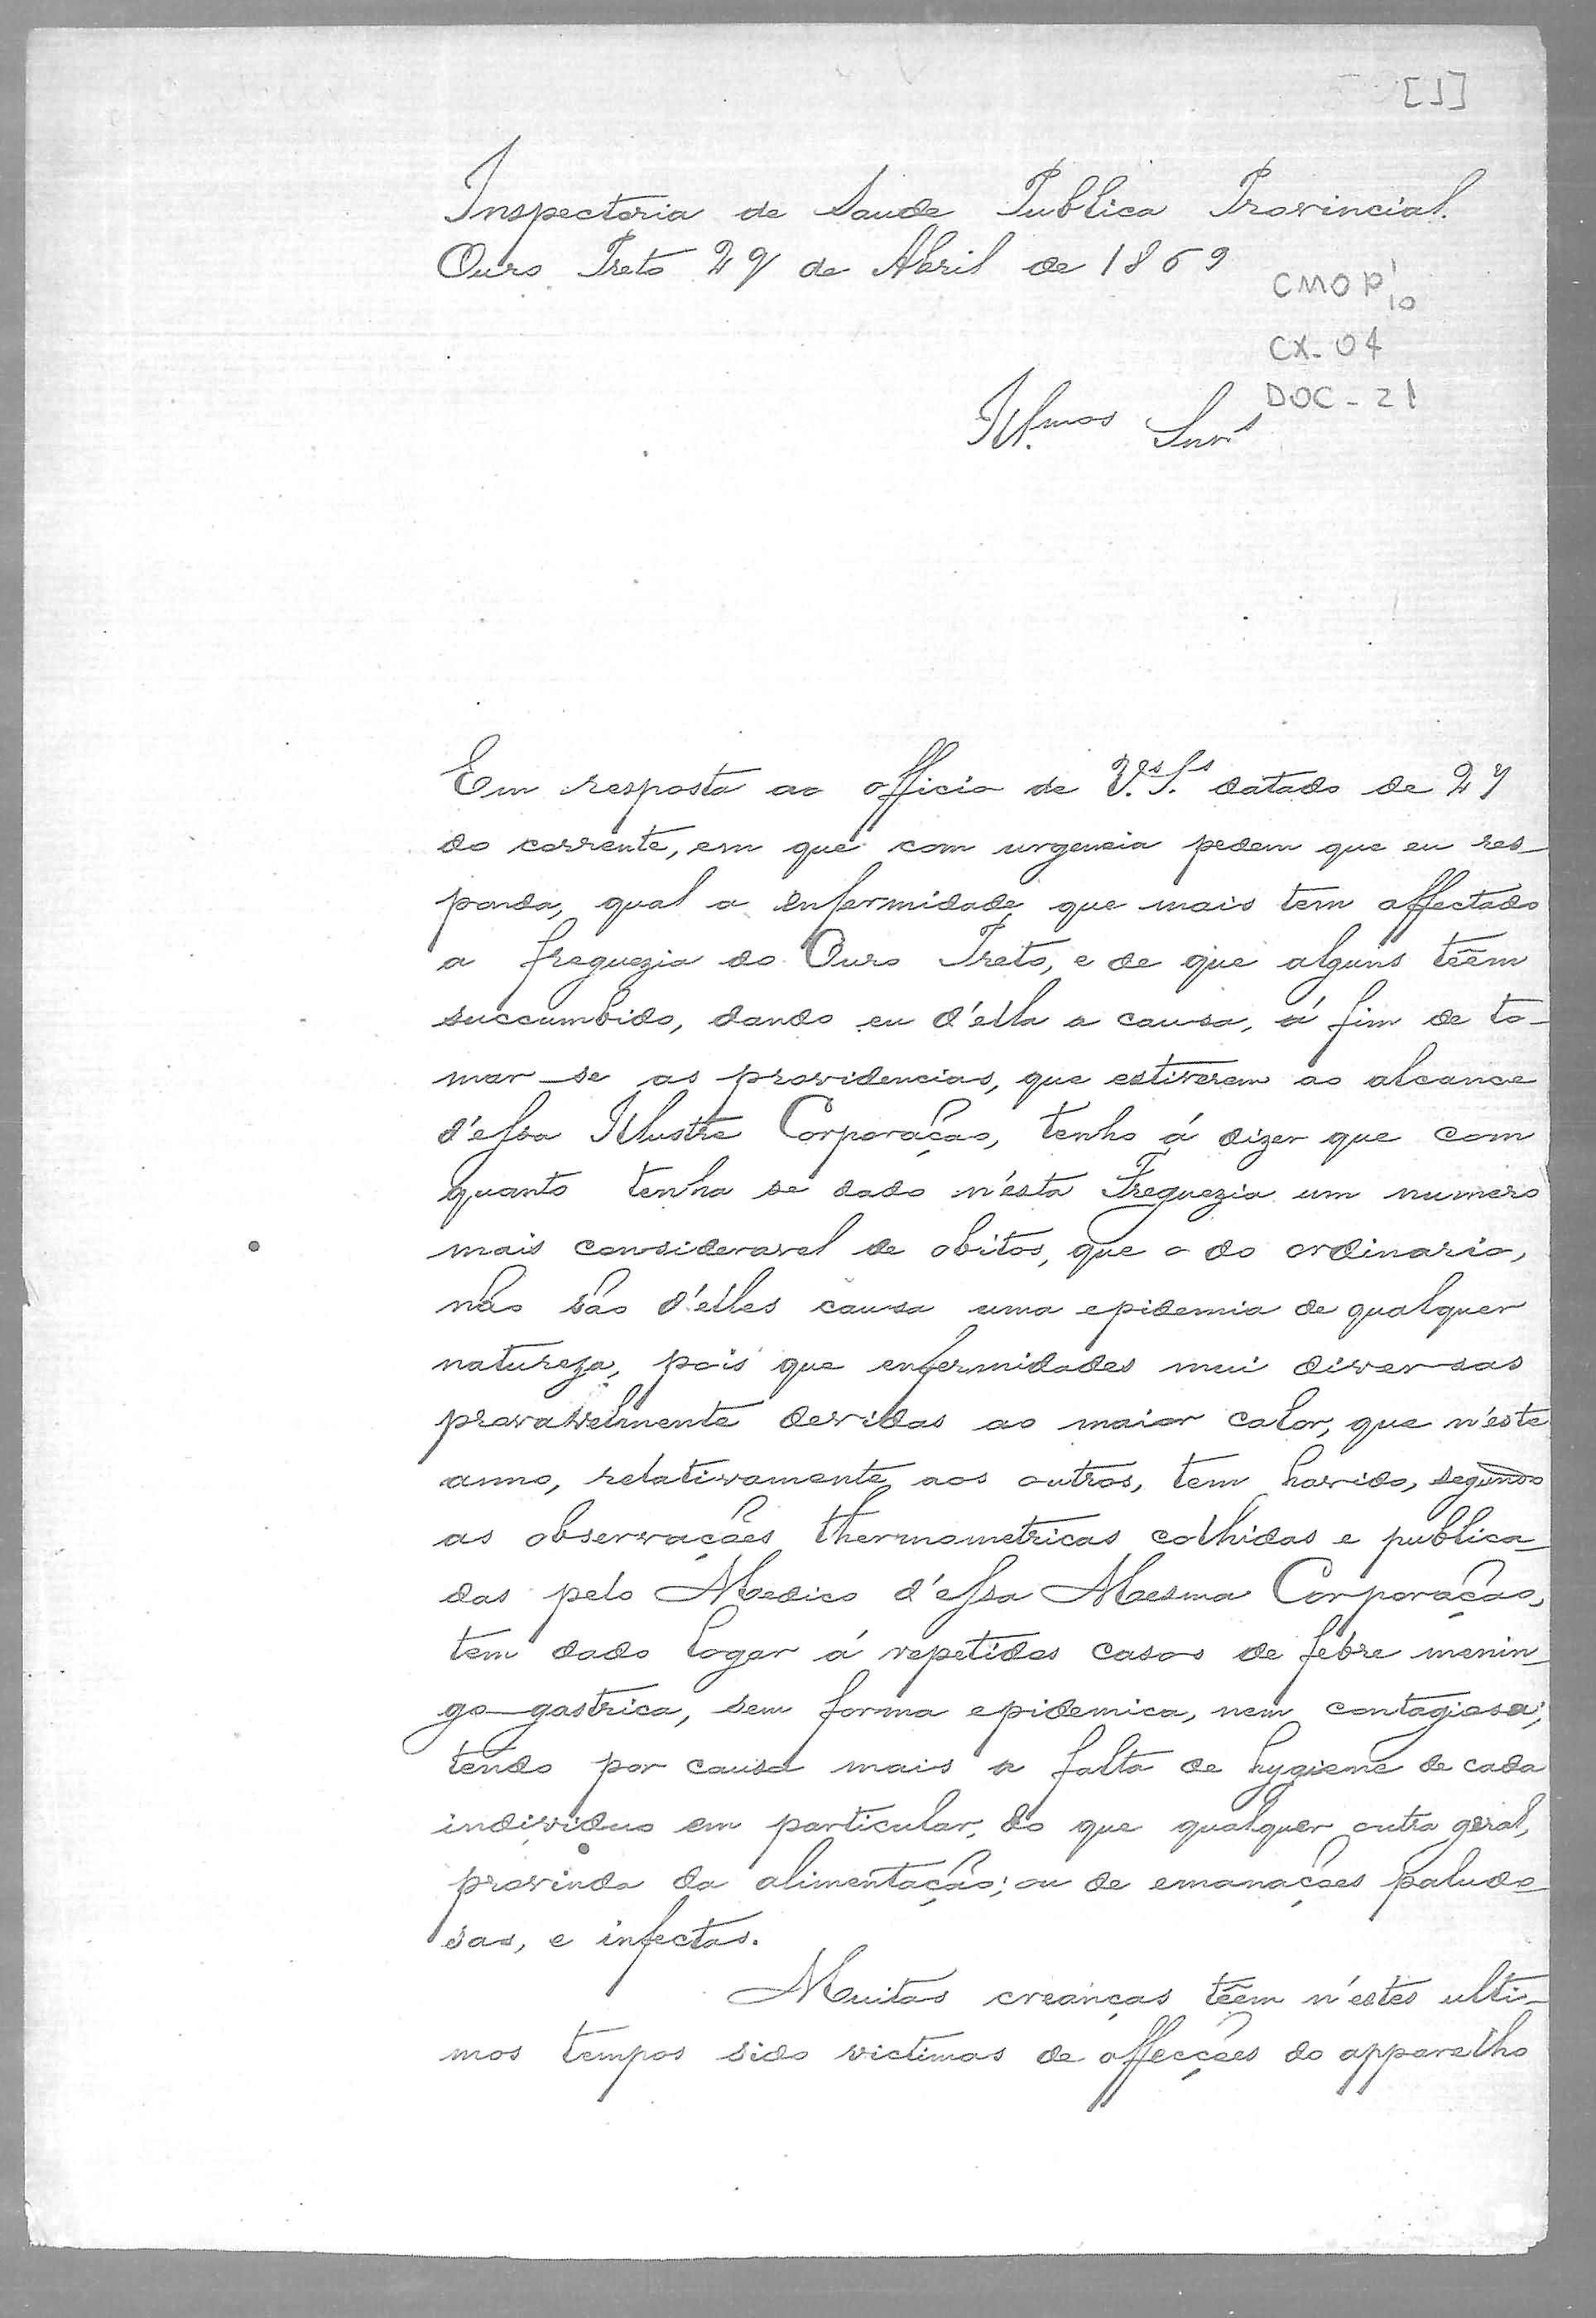 [1]
Inspectoria de Saude Publica Provincial.
Ouro Preto 29 de Abril de 1869
CMOP 1/10
CX. 04
DOC - 21
Ill.mos Snrs
Em resposta ao officio de V.as S.as datado de 27
do corrente, em que com urgencia pedem que eu res-
ponda, qual a enfermidade que mais tem affectado
a freguezia do Ouro Preto, e de que alguns têem
succumbido, dando eu d'ella a causa, á fim de to-
mar-se as providencias, que estiverem ao alcance
d'essa Illustre Corporação, tenho á dizer que com
quanto tenha se dado n'esta Freguezia um numero
mais consideravel de obitos, que o do ordinario,
não são d'elles causa uma epidemia de qualquer
natureza, pois que enfermidades mui diversas
provavelmente devidas ao maior calor, que n'este
anno, relativamente aos outros, tem havido, segundo
as observações thermometricas colhidas e publica-
das pelo Medico d'essa Mesma Corporação,
tem dado logar á repetidos casos de febre menin-
go-gastrica, sem forma epidemica, nem contagiosa;
tendo por causa mais a falta de hygiene de cada
individuo em particular, do que qualquer outra geral,
provinda da alimentação; ou de emanações paludo-
sas, e infectas.
Muitas creanças têem n'estes ulti-
mos tempos sido victimas de affecções do apparelho